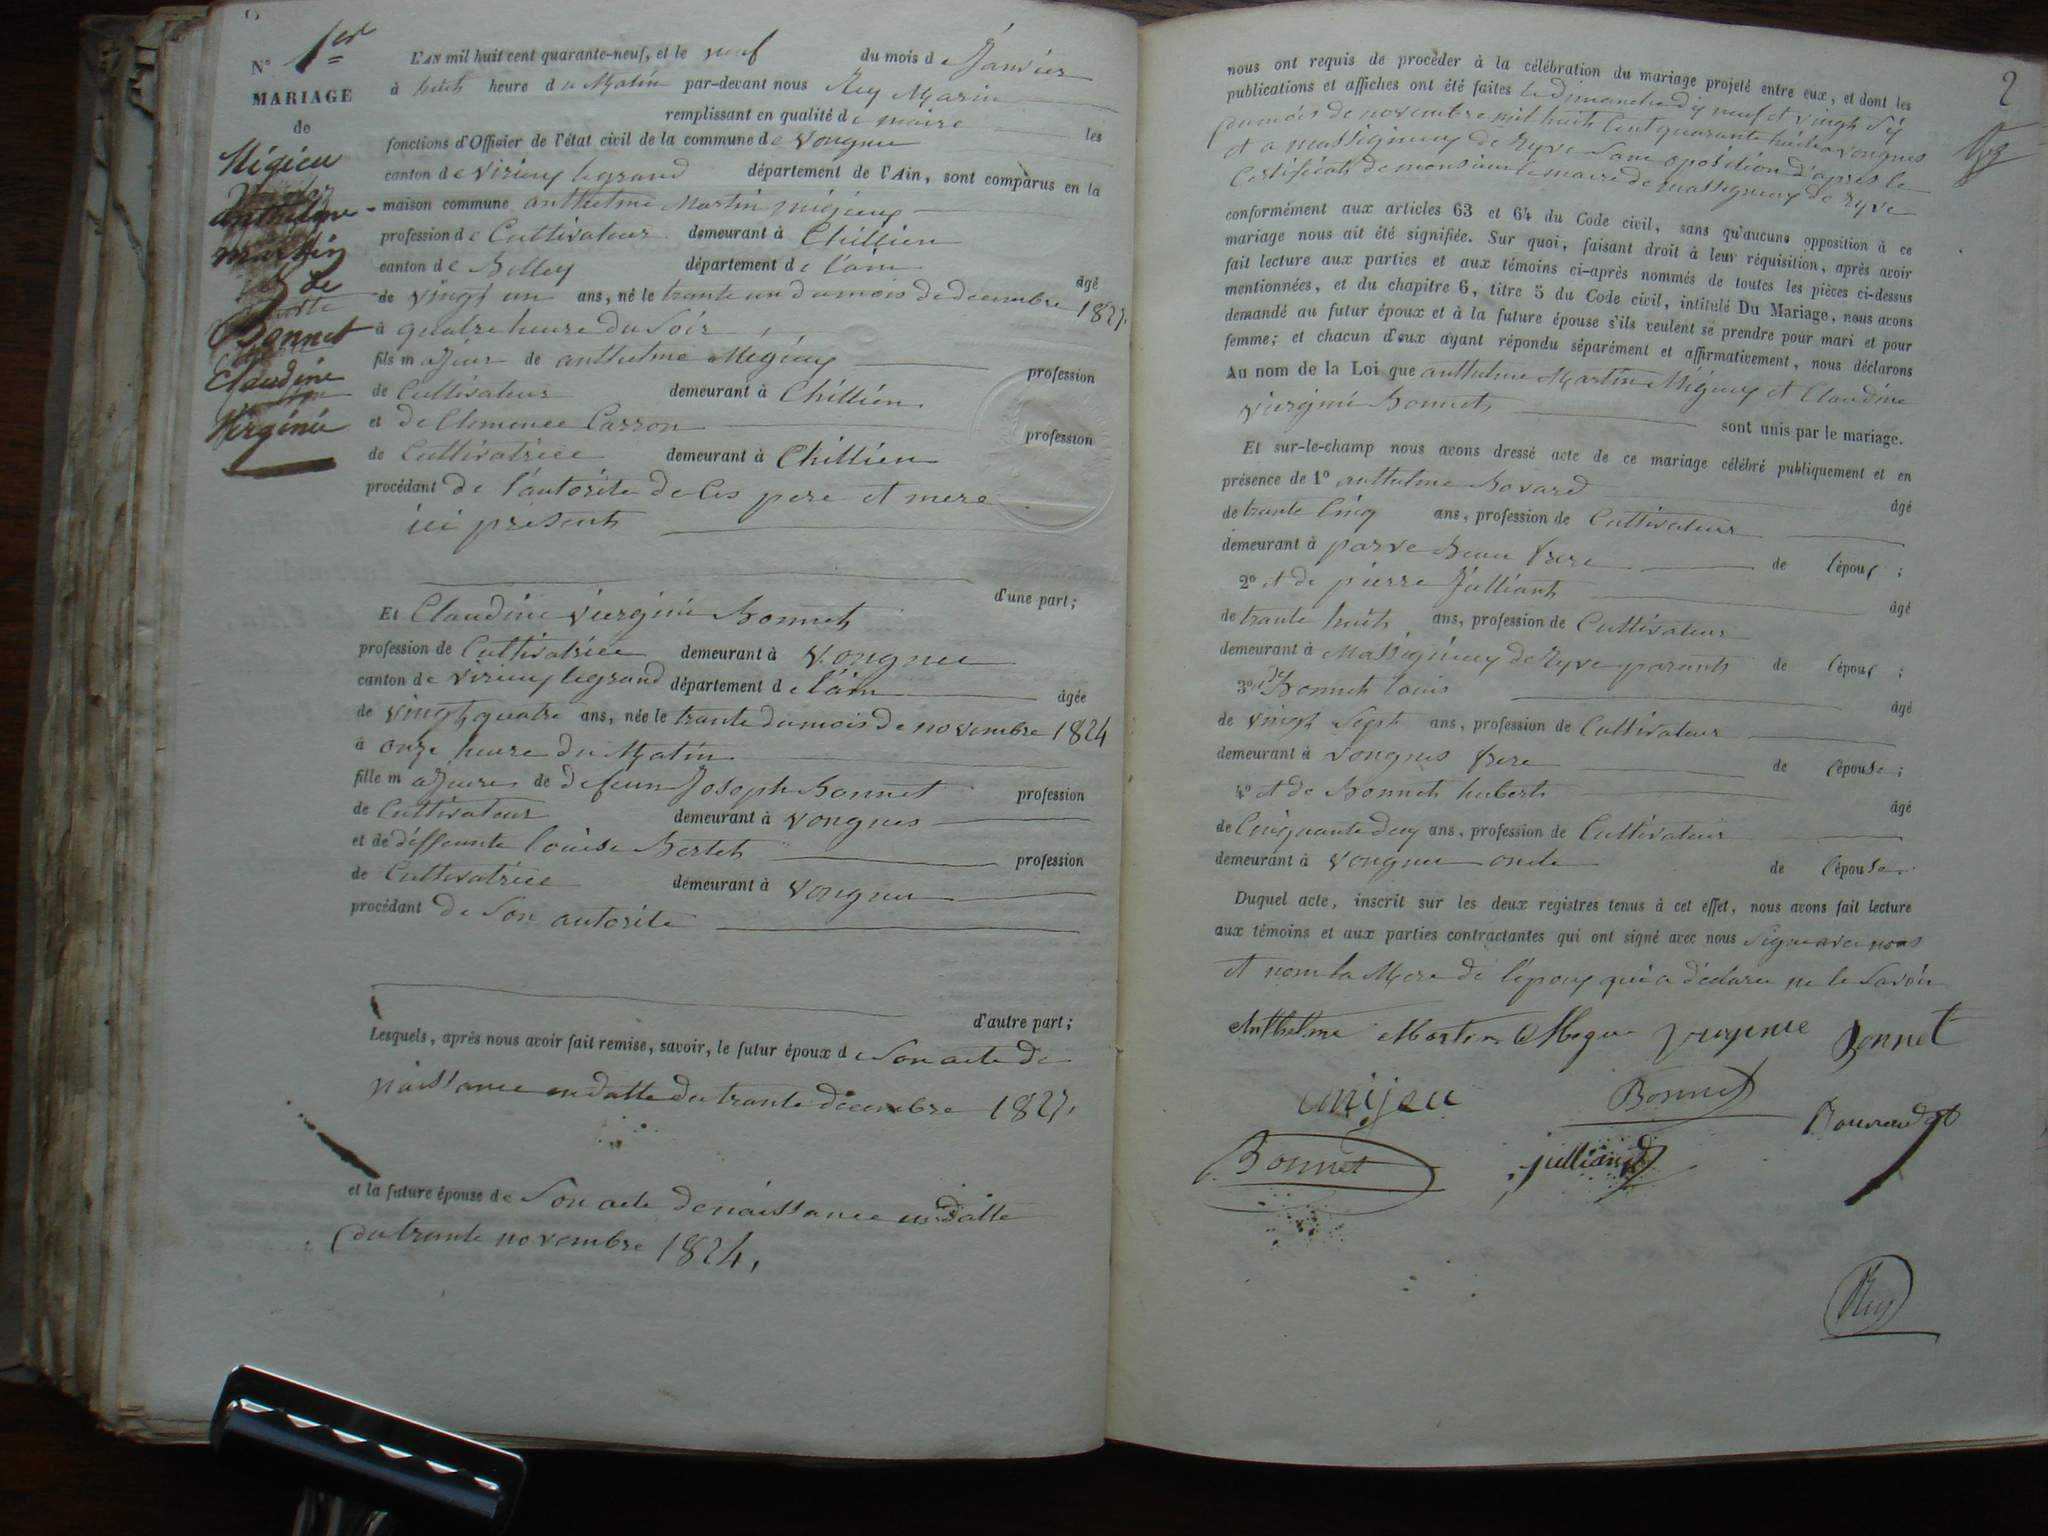 N° 1er
MARIAGE
de
Mégieu
anthelme
martin
et de
Bonnet
Claudine
Virginie
L'AN mil huit cent quarante-neuf, et le neuf du mois de Janvier
à huit heure du Matin par-devant nous Rey Marin
remplissant en qualité de maire les
fonctions d'Officier de l'état civil de la commune de Vongnes
canton de virieu legrand département de l'Ain, sont comparus en la
maison commune anthelme Martin Mégieux
profession de Cultivateur demeurant à Chillieu
canton de Belley département de l'ain âgé
de vingt un ans, né le trante un du mois de decembre 1827
à quatre heure du Soir
fils majeur de anthelme Mégieux profession
de Cultivateur demeurant à Chillieu
et de Clemence Carron profession
de Cultivatrice demeurant à Chillieu
procédant de l'autorité de Ces pere et mere
ici présents
d'une part;
Et Claudine viergini Bonnet
profession de Cultivatrice demeurant à Vongnes
canton de virieu legrand département de l'ain âgée
de vingt quatre ans, née le trante du mois de novembre 1824
à onze heure du Matin
fille majeure de defeun Joseph Bonnet profession
de Cultivateur demeurant à vongnes
et de deffeunte louise Bertet profession
de Cultivatrice demeurant à vongnes
procédant de Son autorité
d'autre part;
Lesquels, après nous avoir fait remise, savoir, le futur époux de Son acte de
naissance en datte du trante decembre 1827,
et la future épouse de Son acte de naissance en datte
du trante novembre 1824,
2
nous ont requis de procéder à la célébration du mariage projeté entre eux, et dont les
publications et affiches ont été faites le dimanche dix neuf et vingt six
du mois de novembre mil huit Cent quarante huit a vongnes
et a massigneux de Ryve Sans oposition d'apres le
Certificat de monsieur le maire de massigneux de Ryve
conformément aux articles 63 et 64 du Code civil, sans qu'aucune opposition à ce
mariage nous ait été signifiée. Sur quoi, faisant droit à leur réquisition, après avoir
fait lecture aux parties et aux témoins ci-après nommés de toutes les pièces ci-dessus
mentionnées, et du chapitre 6, titre 5 du Code civil, intitulé Du Mariage, nous avons
demandé au futur époux et à la future épouse s'ils veulent se prendre pour mari et pour
femme; et chacun d'eux ayant répondu séparément et affirmativement, nous déclarons
Au nom de la Loi que anthelme Martin Mégieux et Claudine
viergini Bonnet sont unis par le mariage.
Et sur-le-champ nous avons dressé acte de ce mariage célébré publiquement et en
présence de 1° anthelme Bovard âgé
de trante Cinq ans, profession de Cultivateur
demeurant à parve Beau frere de l'époux;
2° et de pierre Julliant âgé
de trante huit ans, profession de Cultivateur
demeurant à Massigneux de Ryve parents de l'époux;
3° Bonnet louis âgé
de vingt Sept ans, profession de Cultivateur
demeurant à vongnes frere de l'épouse;
4° et de Bonnet hubert âgé
de Cinquante deux ans, profession de Cultivateur
demeurant à vongnes oncle de l'épouse.
Duquel acte, inscrit sur les deux registres tenus à cet effet, nous avons fait lecture
aux témoins et aux parties contractantes qui ont signé avec nous Signé avec nous
et nom la Mere de l'epoux qui a déclaré ne le Savoir
Anthelme Martin Megieu Virginie Bonnet
mijeu Bonnet
Bonnet julliand
Rey